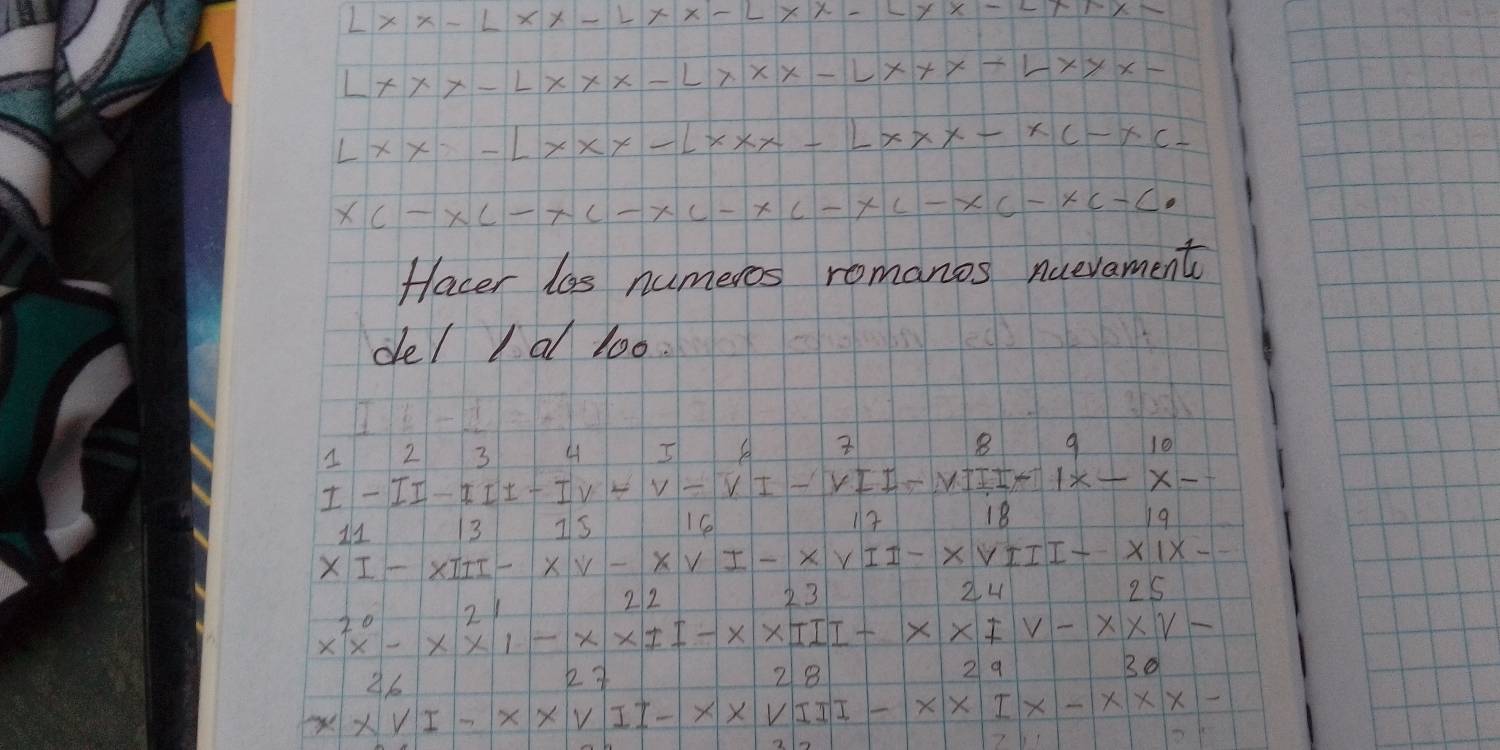 Lxx-Lxx-Lxx-Lxx-Lxx-Lxxx-
Lxxx-Lxxx-Lxxx-Lxxx-Lxxx-
Lxx -Lxxx-Lxxx-Lxxx-xc-xc-
xc-xc-xc-xc-xc-xc-xc-xc-c.
Hacer los numeros romanos nuevamente
del 1 al 100.
1 2 3 4 5 6 7 8 9 10
I-II-III-IV-V-VI-VII-VIII-IX-X-
11 13 15 16 17 18 19
XI-XIII-XV-XVI-XVII-XVIII-XIX-
20 21 22 23 24 25
XX-XXI-XXII-XXIII-XXIV-XXV-
26 27 28 29 30
XXVI-XXVII-XXVIII-XXIX-XXX-